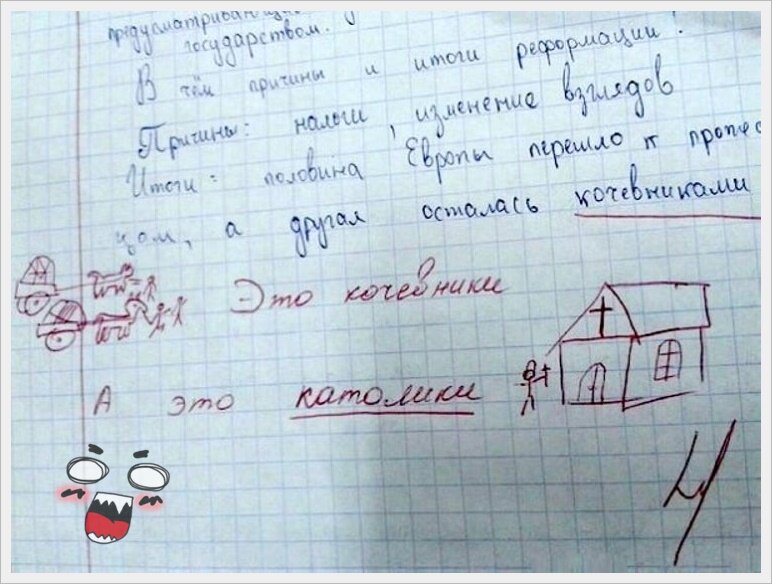 предусматривающ
государством.
В чём причины и итоги реформации?
Причины: налоги, изменение взглядов
Итоги: половина Европы перешло к проте
цам, а другая осталась кочевниками
Это кочевники
А это католики
4